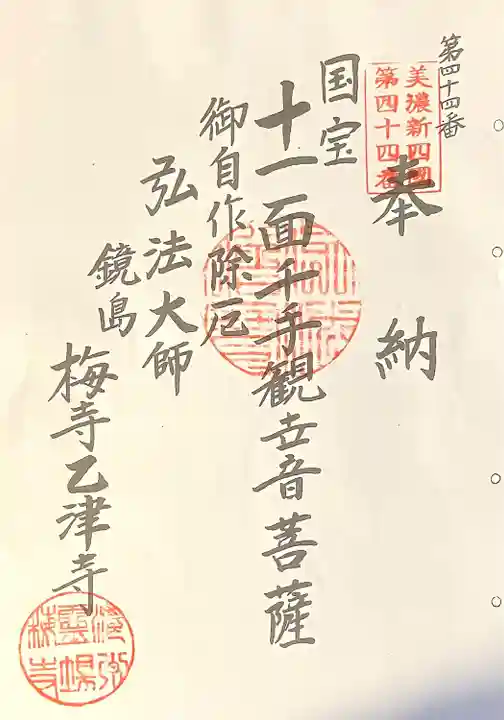 第四十四番
美濃新四國
第四十四番
奉納
国宝
十一面千手観世音菩薩
御自作除厄
弘法大師
鏡島
梅寺乙津寺